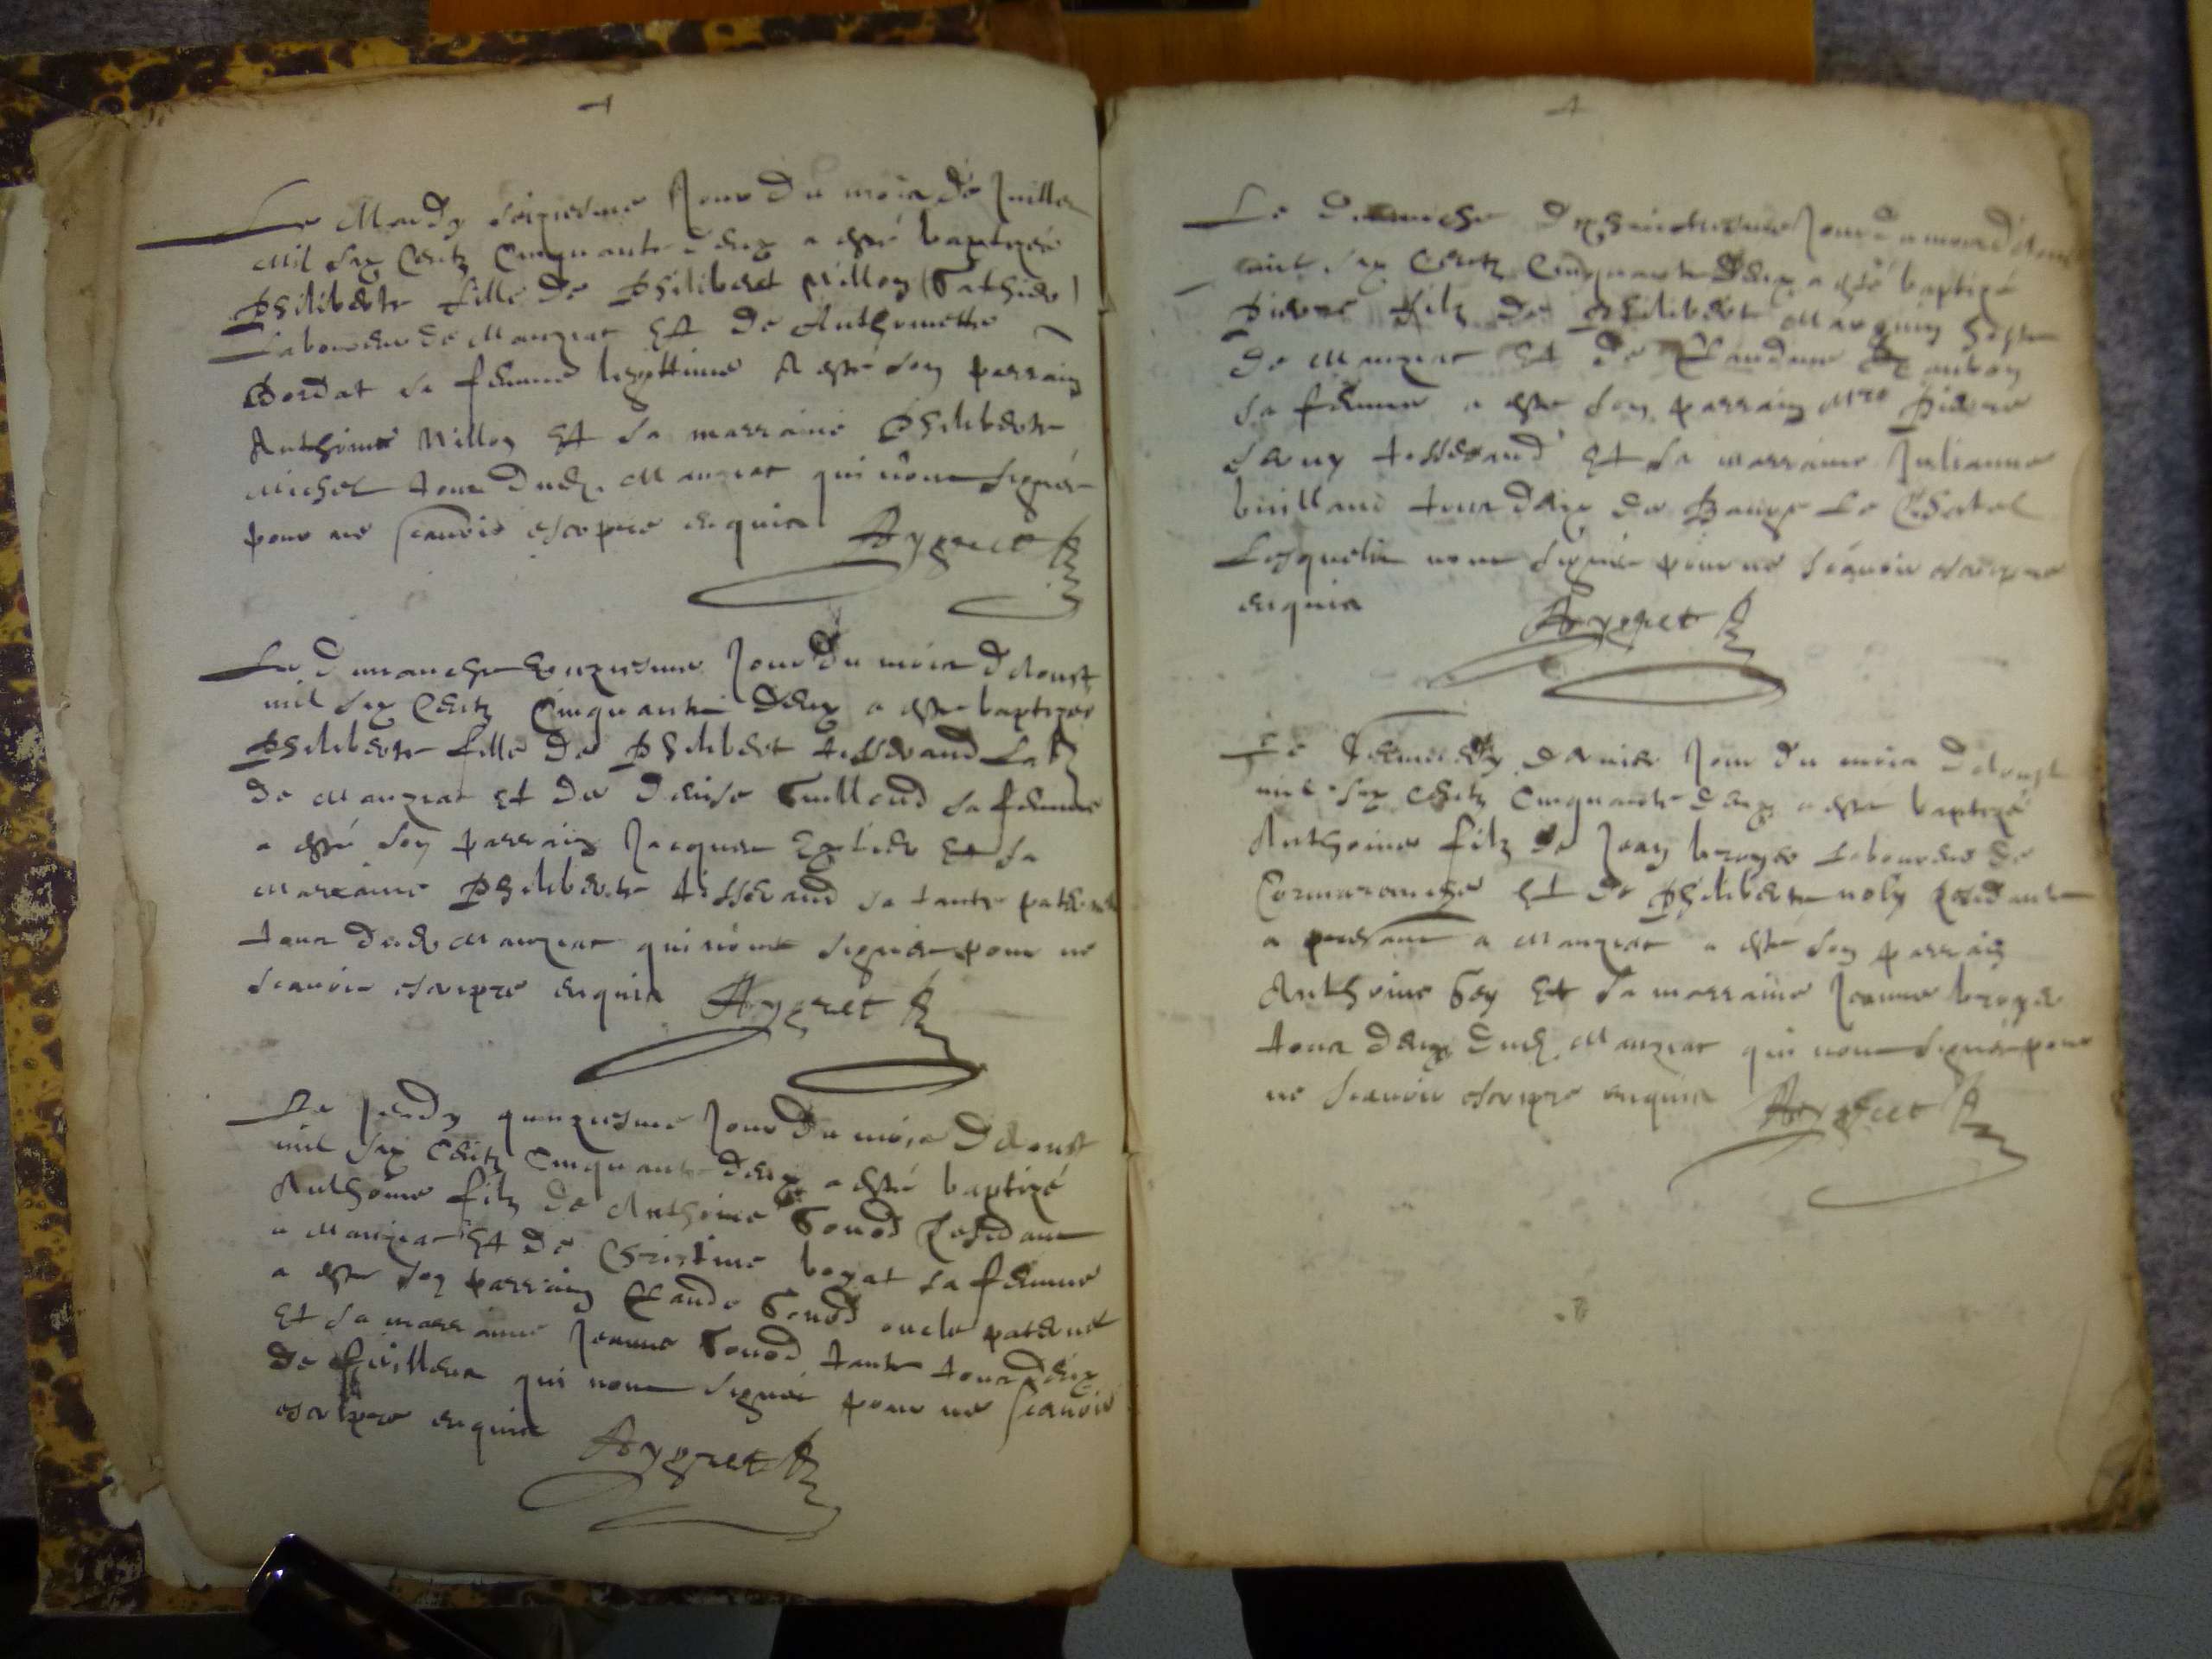 Le Mardy seiziesme Jour du mois de Juillet
mil six Centz Cinquante deux a esté baptizée
Philiberte fille de Philibert Nillon (
Laboureur de Manziat Et de Anthoinette
Bordat sa femme legittime A esté son parrain
Anthoine Nillon Et sa marraine Philiberte
Michel tous dud. Manziat qui n'ont signé
pour ne scavoir escripre enquis Aygret
Le dimanche unziesme Jour du mois d'Aoust
mil six Centz Cinquante deux a esté baptizée
Philiberte fille de Philibert tisserand Lab
de Manziat Et de Denise Guilloud sa femme
a esté son parrain Jacques Et sa
Marraine Philiberte tisserand sa tante paternelle
tous dud. Manziat qui n'ont signé pour ne
scavoir escripre enquis Aygret
Le Jeudy quinziesme Jour du mois d'Aoust
mil six Centz Cinquante deux a esté baptizé
Anthoine filz de Anthoine Gonod Residant
a Manziat Et de Christine boyat sa femme
a esté son parrain Claude Gonod oncle paternel
Et sa marraine Jeanne Gonod tante tous deux
de qui n'ont signé pour ne scavoir
escripre enquis Aygret
Le dimanche dixhuictiesme Jour du mois d'Aoust
mil six Centz Cinquante deux a esté baptizé
Pierre filz de Philibert Marguin hoste
de Manziat Et de Claudine
sa femme a esté son parrain Mre Pierre
tisserand Et sa marraine Julianne
tous deux de Baugé Le Chatel
Lesquelz n'ont signé pour ne scavoir escripre
enquis Aygret
Le dernier Jour du mois d'Aoust
mil six Centz Cinquante deux a esté baptizé
Anthoine filz de Jean broyer Laboureur de
Cormaranche Et de Philiberte noly Residante
a presant a Manziat a esté son parrain
Anthoine Et sa marraine Jeanne broyer
tous deux dud. Manziat qui n'ont signé pour
ne scavoir escripre enquis Aygret